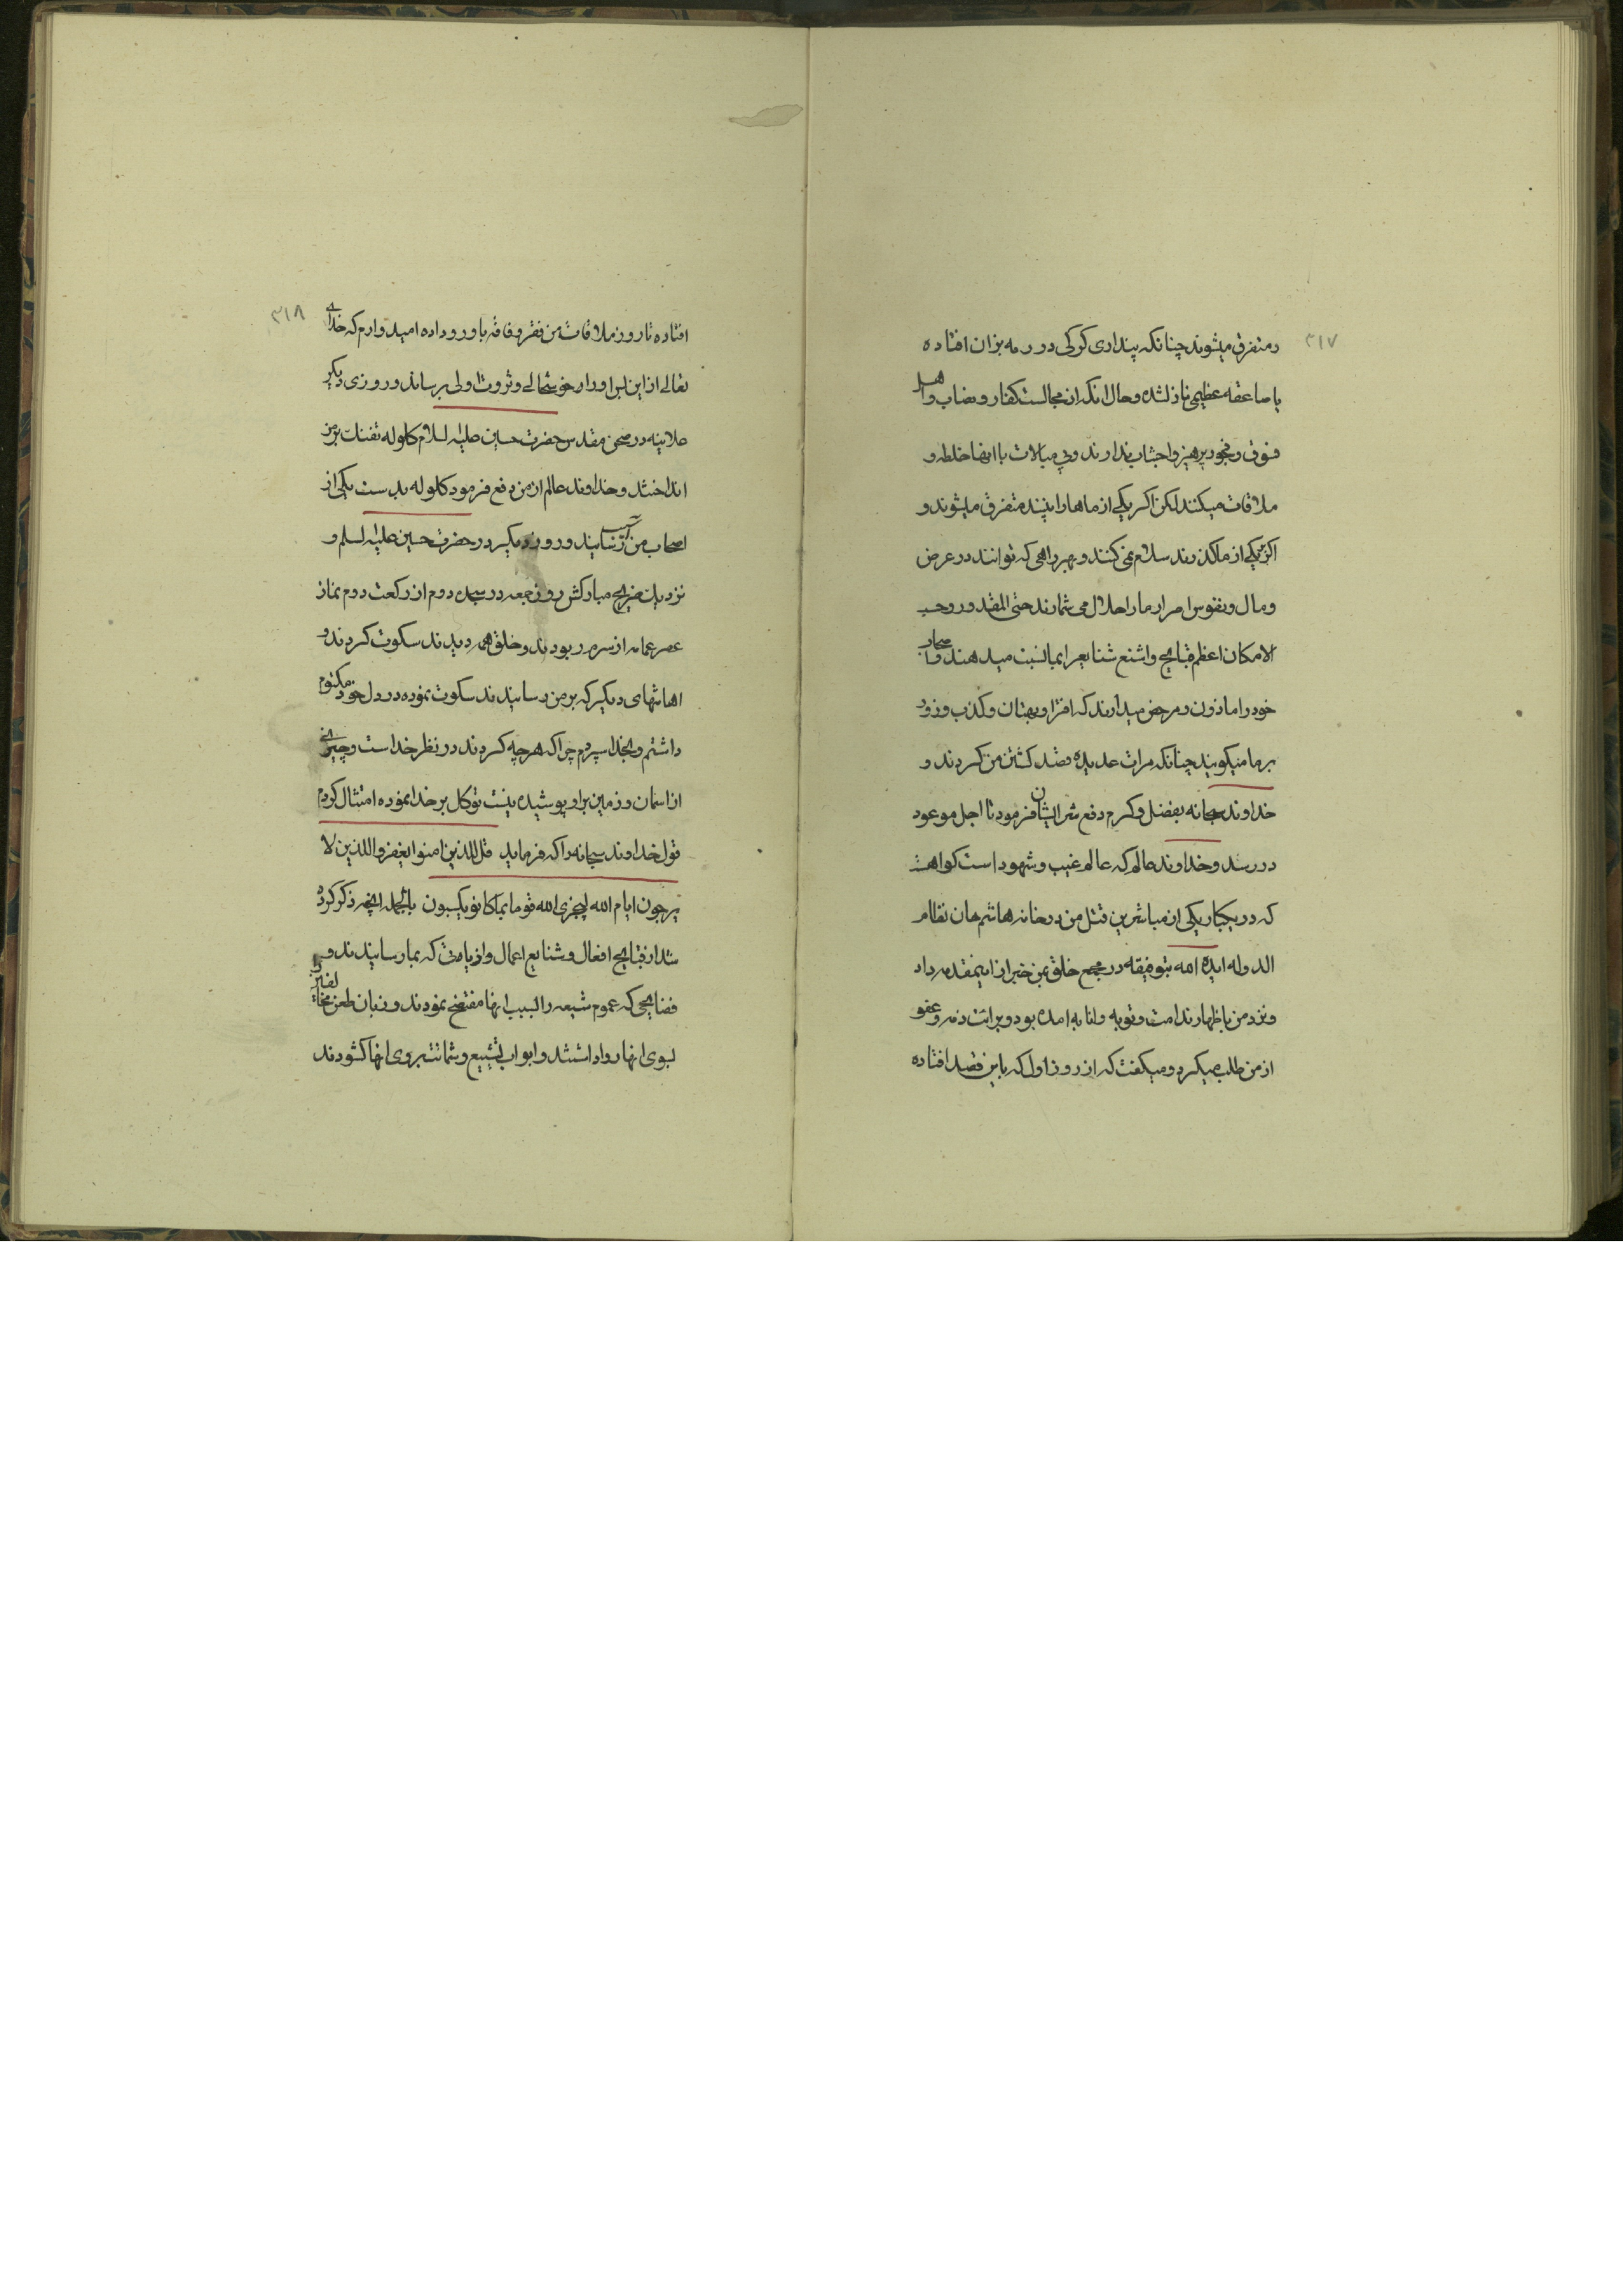 ۳۱۷
رمتفرق میشوند چنانکه پنداری کرکی در رمه بزان افتاده
یا صاعقه عظیمی نازلشده و حال انکه از مجالست کفار و نصاب و اهل
فسوق و فجور پرهیز و اجتناب ندارند و بی مبالات با انها خلطه و
ملاقات میکنند لکن اکر یکی از ماها را ببینند متفرق میشوند و
اکر بر یکی از ما کذرند سلام نمی کنند و بهر راهی که توانند در عرض
و مال و نفوس امرار ما را حلال می شمارند حتی المقدور و حسب
الامکان اعظم قبایح و اشنع شنایع را بما نسبت میدهند و اصحاب
خود را ماذون و مرخص میدارند که افترا و بهتان و کذب و زور
بر ما میکویند چنانکه مرات عدیده قصد کشتن من کردند و
خداوند سبحانه بفضل و کرم دفع شر ایشان فرمود تا اجل موعود
در رسد و خداوند عالم که عالم غیب و شهود است کواهست
که در یکبار یکی از مباشرین قتل من در خانه هاشم خان نظام
الدوله ایده الله بتوفیقه در مجمع خلق بمن خبر از اینمقدمه داد
و نزد من باظهار ندامت و توبه و انابه امده بود و برائت ذمه و عفو
از من طلب میکرد و میکفت که از روز اول که باین قصد افتاده
۳۱۸
افتاده تا روز ملاقات من فقر و فاقه باو رو داده امیدوارم که خدای
تعالی از این پس او را در خوشحالی و ثروت اولی برساند و روزی دیکر
علانیه در صحن مقدس حضرت حسین علیه السلام کلوله تفنک بر من
انداختند و خداوند عالم از من دفع فرمود کلوله بدست یکی از
اصحاب من اسیب رسانید و روز دیکر در حضرت حسین علیه السلم و
نزدیک ضریح مبارکش روز جمعه در سجده دوم از رکعت دوم نماز
عصر عمامه از سرم ربودند و خلق همه دیدند سکوت کردند و
اهانتهای دیکر که بر من رسانیدند سکوت نموده در دل خود مکتوم
داشتم و بخدا سپردم چرا که هر چه کردند در نظر خداست و چیزی
از اسمان و زمین بر او پوشیده نیست توکل بر خدا نموده امتثال کردم
قول خداوند سبحانه را که فرماید قل للذین امنوا یغفروا للذین لا
یرجون ایام الله لیجزی الله قوما بما کانوا یکسبون بالجمله انچه ذکر کرده
شد از قبایح افعال و شنایع اعمال و اذیامت که بما رسانیدند و
فضایحی که عموم شیعه را بسبب انها مفتضح نمودند و زبان طعن مخالفین را
بسوی انها روا داشتند و ابواب تشنیع و شماتت بروی انها کشودند